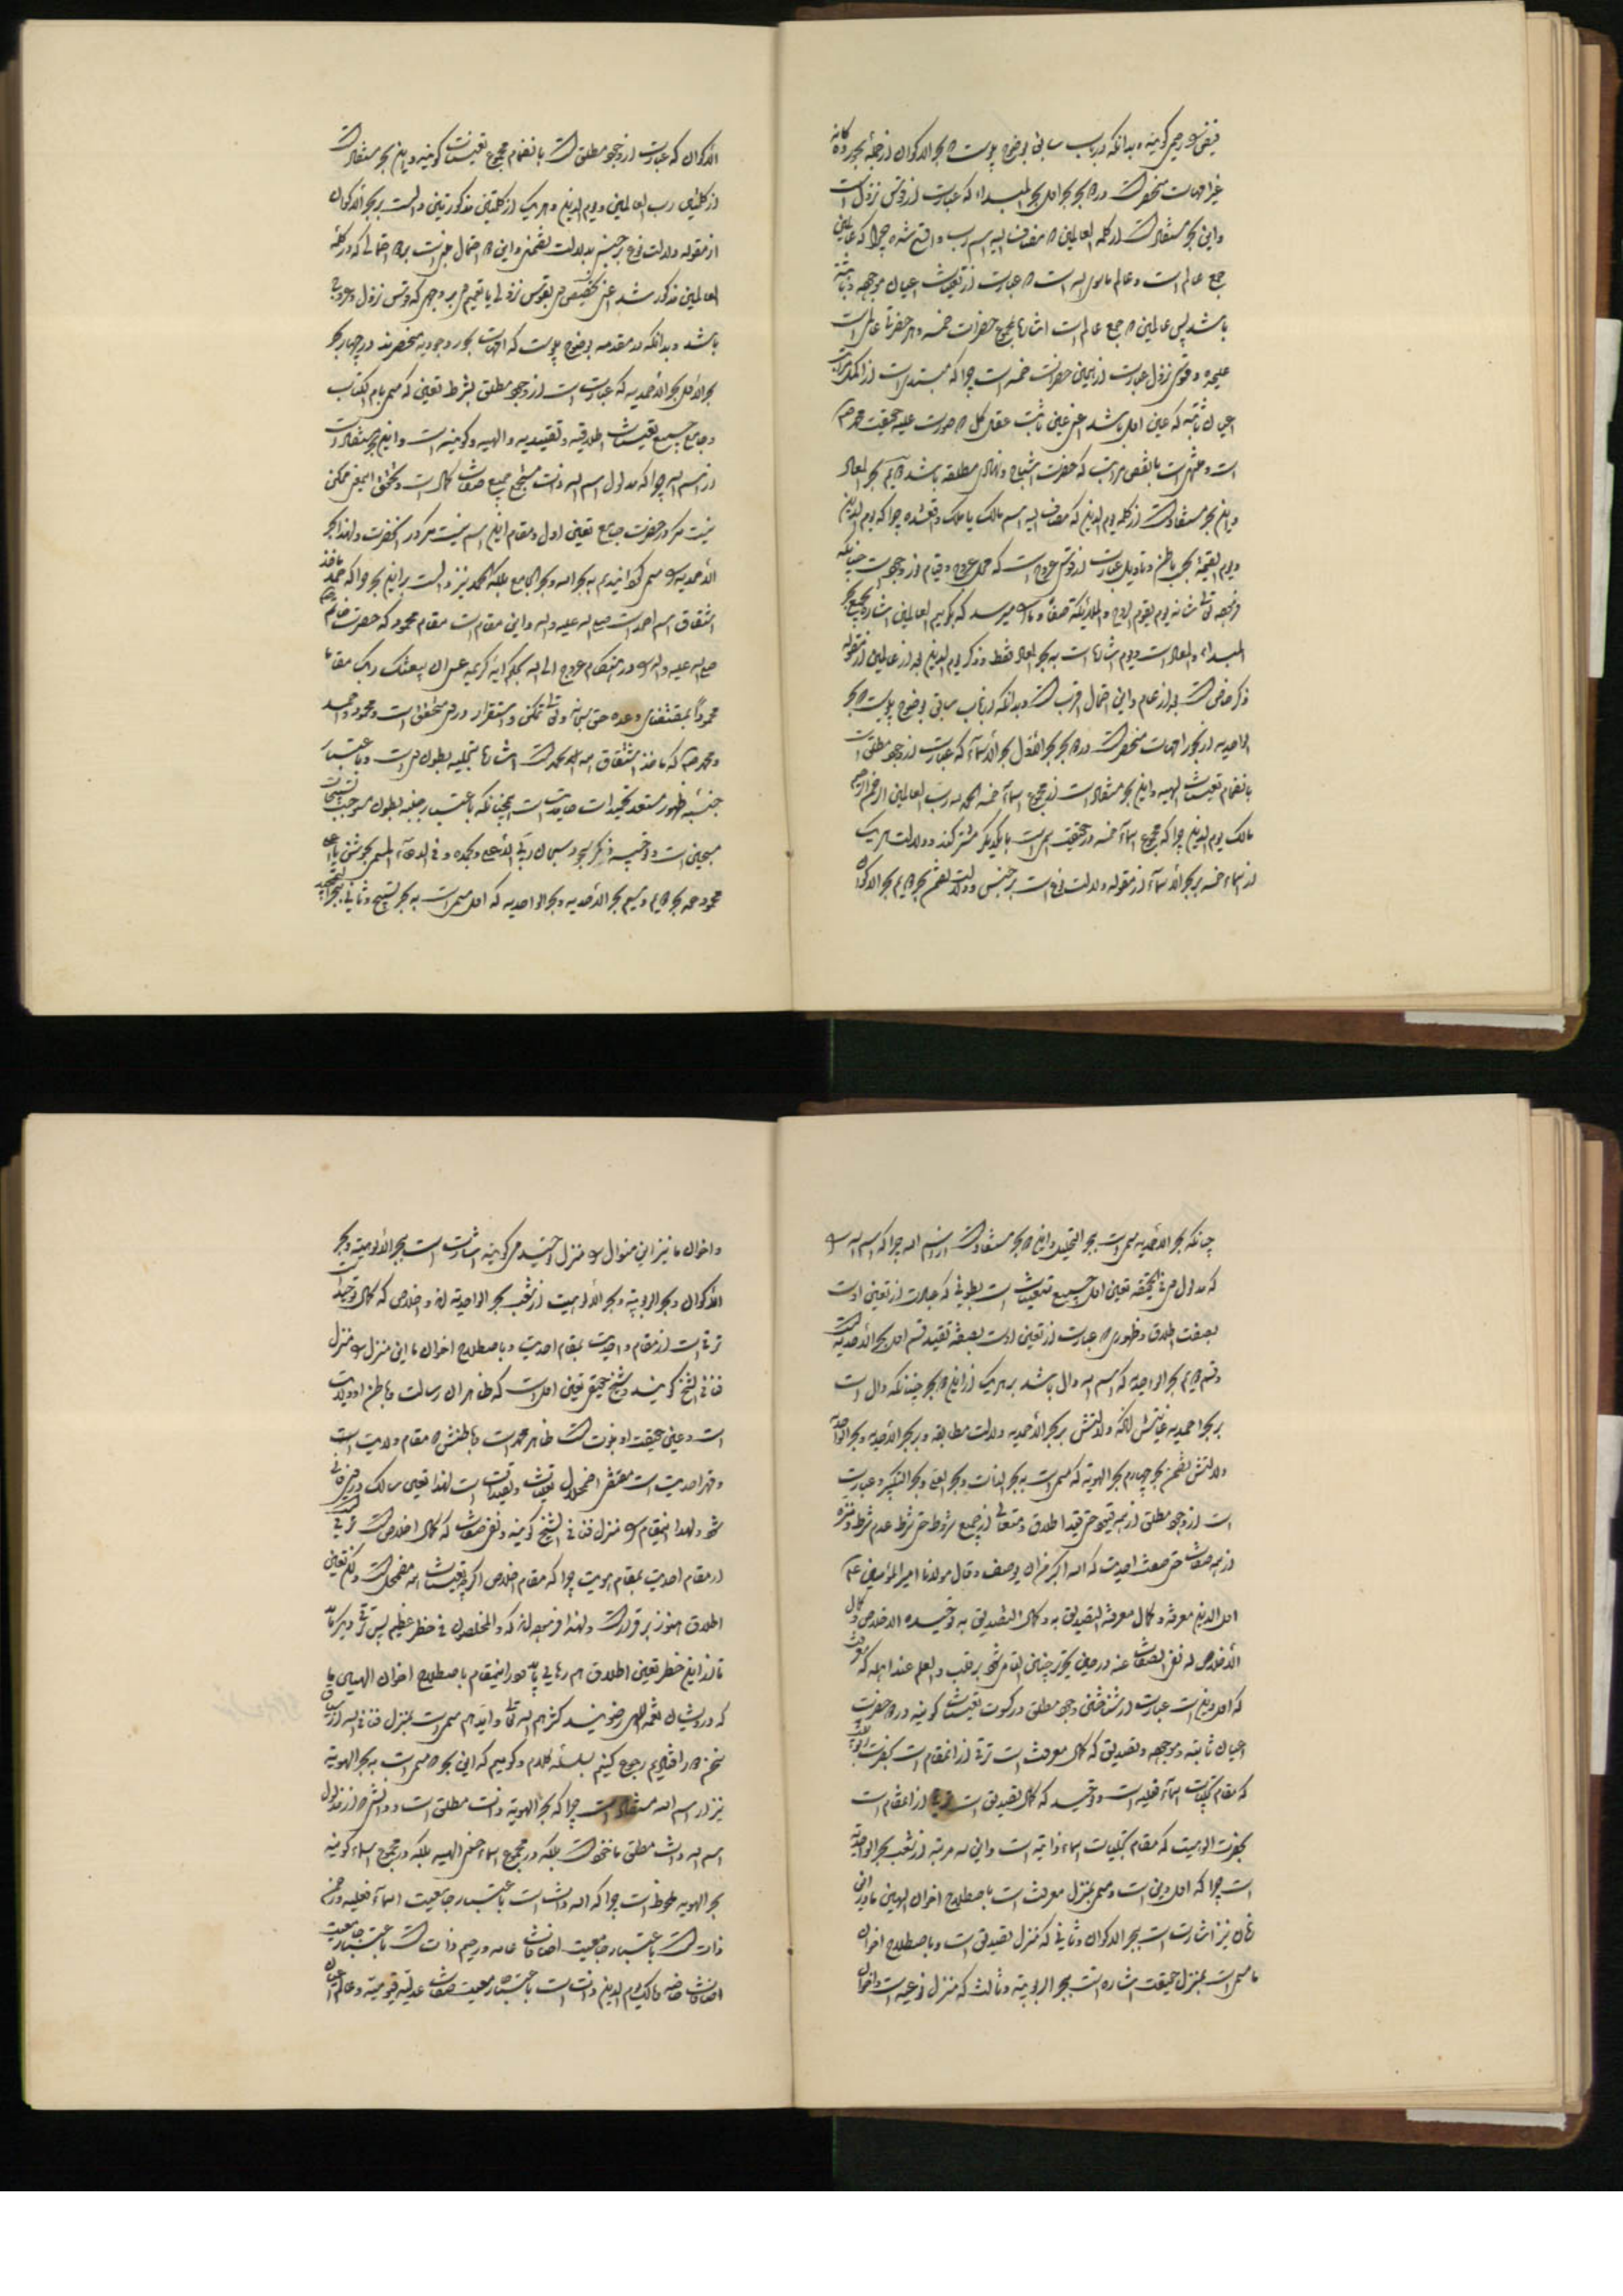 فیض و رحیم کونیه و بدانکه در باب سابق بوضوح پیوست که بحر الاکوان از جمله بحور
غیر امهات منحصر است در دو بحر بحر اول بحر المبداء که عبارت از قوس نزول است
و این بحر مستفاد است از کلمه العالمین که مضاف الیه اسم رب واقع شده چرا که عالمین
جمع عالم است و عالم ماسوی الله است که عبارت از تعینات اعیان موجهه و ثابته
باشد پس عالمین که جمع عالم است اشارتا بمجموع حضرات خمسه و هر حضرتی عالمی است
علیحده و قوس نزول عبارت از همین حضرات خمسه است چرا که مبتدی است از اکمل مراتب
اعیان ثابته که عین اول باشد اعنی عین ثابت عقل کل که صورت علیه حقیقت محمدیه
است و منتهی است بانقص مراتب که حضرت اشباح و مطلقه باشد دویم بحر المعاد
و این بحر مستفاد است از کلمه یوم الدین که مضاف الیه اسم مالک یا ملک واقعشده چرا که یوم الدین
و یوم القیمة بحسب باطن و تاویل عبارت از قوس عروج است که محل عروج و قیام
یوم یقوم الروح و الملائکة صفا و ما را میرسد که بگوئیم العالمین اشاره بمجموع بحر
المبداء و المعاد است و یوم اشارتا است به بحر المعاد فقط و ذکر یوم الدین بعد از عالمین از مقوله
ذکر خاص است بعد از عام و این احتمال اقرب است و بدانکه در باب سابق بوضوح پیوست که بحر
الواحدیه از بحور امهات منحصر است در دو بحر بحر الاول بحر الاسماء که عبارت از وجود مطلق است
بانضمام تعینات الهیه و این بحر مستفاد است از مجموع اسماء خمسه الحمد لله رب العالمین الرحمن الرحیم
مالک یوم الدین چرا که مجموع اسماء خمسه در حقیقت اسمیت با یکدیگر مشترکند و دلالت هر یک
از اسماء خمسه بر بحر الاسماء از مقوله دلالت نوع است بر جنس و دلالت تضمن بحر دویم بحر الاکوان
الاکوان که عبارت از وجود مطلق است بانضمام مجموع تعینات کونیه و این بحر مستفاد است
از کلمتین رب العالمین و یوم الدین و هر یک از کلمتین مذکورتین دال است بر بحر الاکوان
از مقوله دلالت نوع بر جنس بدلالت تضمنی و این که احتمال مبنی است بر احتمالی که در کلمه
العالمین مذکور شد اعنی تخصیص بقوس نزولی یا تعمیم بر وجهی که قوس نزول و عروج
باشد و بدانکه در مقدمه بوضوح پیوست که امهات بحور وجودیه منحصرند در چهار بحر
بحر الاول بحر الاحمدیه که عبارت است از وجود مطلق بشرط تعینی که مسمی بام الکتاب
و جامع جمیع تعینات اطلاقیه و تقییدیه و الهیه و کونیه است و این بحر مستفاد است
از اسم الله چرا که مدلول اسم الله ذات مستجمع جمیع صفات کمال است و تحقق این ممکن
نیست مگر در حضرت جامع تعین اول و مقام این اسم نیست مگر در آنحضرت و لهذا بحر
الاحمدیه را مسمی گردانیدیم به بحر الله و بحر الجامع بلکه الحمد نیز دال است براین بحر چرا که حمد ماخذ
اشتقاق اسم احمد است صلی الله علیه و آله و این مقام است مقام محمود که حضرت خاتم
صلی الله علیه و آله را در هنگام عروج الی الله بحکم آیه کریمه عسی ان یبعثک ربک مقاما
محمودا بمقتضای وعده حق سبحانه و تعالی تمکن و استقرار در محقق است و محمود و احمد
و محمد که ماخذ اشتقاق است اشارتا بتجلیه بطون است و باعتبار
جنبه ظهور مستعد تحمیدات حامدیت است همچنانکه باعتبار جنبه بطون موجب تسبیحات
مسبحین است و فی ذکر السجود سبحان ربی الاعلی و بحمده و فی الدعاء المسمی بجوشن یا
محمود سیم بحر الاحدیه و بحر الواحدیه که اول مسمی است به بحر تسبیح و ثانی ببحر التحمید
چنانکه بحر الاحدیه مسمی است ببحر التهلیل و این دو بحر مستفاد است از اسم الله چرا که اسم الله را
که مدلول فی الحقیقه تعین اول جمیع تعینات است بطونی که عبارت از تعین اول است
بصفت اطلاق و ظهوری که عبارت از تعین اول است بصفه تقیید قسم اول بحر الاحدیه است
و قسم دویم بحر الواحدیه که اسم الله دال باشد بر هر یک از این دو بحر چنانکه دال است
بر بحر احمدیه غایتش آنکه دلالتش بر بحر الاحمدیه دلالت مطابقه و بر بحر الاحدیه و بحر الواحدیه
دلالتش تضمن بحر چهارم بحر الهویة که مسمی است به بحر الذات و بحر الغیب و بحر التکبیر و عبارت
است از وجود مطلق از همه قیود حتی قید اطلاق و متعالی از جمیع شروط حتی شرط عدم شرط و منزه
از همه صفات حتی صفت احدیت که الله اکبر من ان یوصف و قال مولانا امیر المؤمنین ع
اول الدین معرفته و کمال معرفته التصدیق به و کمال التصدیق به توحیده الاخلاص و کمال
الاخلاص له نفی الصفات عنه در حین تحریر چنین القا شد بر قلب و العلم عند الله که معرفت
که اول دین است عبارت از شناختن وجود مطلق در کسوت تعینات کونیه در دو حضرت
اعیان ثابته و موجهه و تصدیق که کمال معرفت است ترقی از انمقام است بحضرت ربوبیت
که مقام تجلیات اسماء فعلیه است و توحید که کمال تصدیق است ترقی از انمقام است
بحضرت الوهیت که مقام تجلیات اسماء ذاتیه است و این سه مرتبه از شعب بحر الواحدیه
است چرا که اول دین است و مسمی بمنزل معرفت است باصطلاح اخوان الهیین ما در این
زمان نیز اشارت است ببحر الاکوان و ثانی که منزل تصدیق است و باصطلاح اخوان
ما مسمی است بمنزل حقیقت اشاره است ببحر الربوبیة و ثالث که منزل توحید است و اخوان
و اخوان ما نیز این منوال را منزل توحید میگویند اشارت است ببحر الالوهیة و بحر
الاکوان و بحر الربوبیة و بحر الالوهیت از شعب بحر الواحدیه اند و اخلاص که کمال توحید است
ترقی است از مقام واحدیت بمقام احدیت و باصطلاح اخوان ما این منزل را منزل
فنا فی الشیخ گویند و شیخ حقیقی تعین اول است که ظاهر ان رسالت و باطن او ولایت
است و عین حقیقت او نبوت است ظاهر محمد است و باطنش که مقام ولایت است
و قهر احدیت است مقتضی اضمحلال تعینات و تقییدات است لهذا تعین سالک در فانی
شود و لهذا اینمقام را منزل فنا فی الشیخ گویند و نفی صفات که کمال اخلاص است ترقی
از مقام احدیت بمقام هویت چرا که مقام اخلاص اگرچه تعینات همه مضمحل است ولکن تعین
اطلاق هنوز برقرار است و لهذا فرموده اند که و المخلصون فی خطر عظیم پس ترقی دیگر باید
تا از این خطر تعین اطلاق هم رهایی یابد و اینمقام باصطلاح اخوان الهیین ما
که درویشان نعمة اللهی میخوانند کثرهم الله تعالی و ایدهم مسمی است بمنزل فنا فی الله از سیاق
سخن دور افتادیم رجوع کنیم بسلسله کلام و گوییم که این بحر که مسمی است به بحر الهویة
نیز از اسم الله مستفاد است چرا که بحر الهویة ذات مطلق است و ذاتش از مدلول
اسم الله ذات مطلق ماخوذ است بلکه در مجموع اسماء الهیه بلکه در مجموع اسماء کونیه
بحر الهویه ملحوظ است چرا که الله ذات است باعتبار جامعیت اسماء فعلیه و رحمن
ذات است باعتبار جامعیت اضافات عامه و رحیم ذات است باعتبار جامعیت
اضافات خاصه و مالک یوم الدین ذات است باعتبار جامعیت صفات عدلیه قیومیته و عالم اعیان